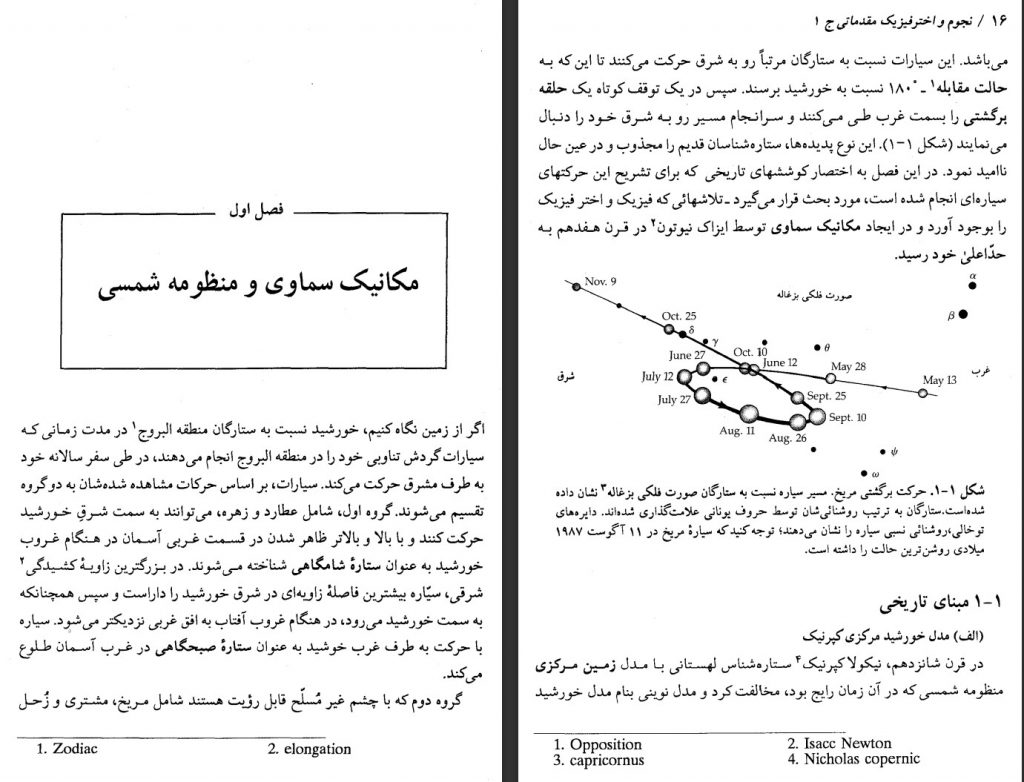 فصل اول
مکانیک سماوی و منظومه شمسی
اگر از زمین نگاه کنیم، خورشید نسبت به ستارگان منطقه البروج۱ در مدت زمانی که
سیارات گردش تناوبی خود را در منطقه البروج انجام می‌دهند، در طی سفر سالانه خود
به طرف مشرق حرکت می‌کند. سیارات، بر اساس حرکات مشاهده شده‌شان به دو گروه
تقسیم می‌شوند. گروه اول، شامل عطارد و زهره، می‌توانند به سمت شرقِ خورشید
حرکت کنند و با بالا و بالاتر ظاهر شدن در قسمت غربی آسمان در هنگام غروب
خورشید به عنوان ستارهٔ شامگاهی شناخته می‌شوند. در بزرگترین زاویهٔ کشیدگی۲
شرقی، سیّاره بیشترین فاصلهٔ زاویه‌ای در شرق خورشید را داراست و سپس همچنانکه
به سمت خورشید می‌رود، در هنگام غروب آفتاب به افق غربی نزدیکتر می‌شود. سیاره
با حرکت به طرف غرب خوشید به عنوان ستارهٔ صبحگاهی در غرب آسمان طلوع
می‌کند.
گروه دوم که با چشم غیر مُسلّح قابل رؤیت هستند شامل مریخ، مشتری و زُحل
1. Zodiac 2. elongation
۱۶ / نجوم و اخترفیزیک مقدماتی ج ۱
می‌باشد. این سیارات نسبت به ستارگان مرتباً رو به شرق حرکت می‌کنند تا این که به
حالت مقابله۱ ـ ۱۸۰° نسبت به خورشید برسند. سپس در یک توقف کوتاه یک حلقه
برگشتی را بسمت غرب طی می‌کنند و سرانجام مسیر رو به شرق خود را دنبال
می‌نمایند (شکل ۱-۱). این نوع پدیده‌ها، ستاره‌شناسان قدیم را مجذوب و در عین حال
ناامید نمود. در این فصل به اختصار کوششهای تاریخی که برای تشریح این حرکتهای
سیاره‌ای انجام شده است، مورد بحث قرار می‌گیرد ـ تلاشهائی که فیزیک و اختر فیزیک
را بوجود آورد و در ایجاد مکانیک سماوی توسط ایزاک نیوتون۲ در قرن هفدهم به
حدّاعلیٰ خود رسید.
Nov. 9
صورت فلکی بزغاله
α
β
Oct. 25
δ
γ
θ
June 27
Oct. 10
June 12
May 28
غرب
شرق
July 12
ϵ
May 13
July 27
Sept. 25
Aug. 11
Aug. 26
Sept. 10
ψ
ω
شکل ۱-۱. حرکت برگشتی مریخ. مسیر سیاره نسبت به ستارگان صورت فلکی بزغاله۳ نشان داده
شده‌است.ستارگان به ترتیب روشنائی‌شان توسط حروف یونانی علامت‌گذاری شده‌اند. دایره‌های
توخالی،روشنائی نسبی سیاره را نشان می‌دهند؛ توجه کنید که سیارهٔ مریخ در ۱۱ آگوست ۱۹۸۷
میلادی روشن‌ترین حالت را داشته است.
۱-۱ مبنای تاریخی
(الف) مدل خورشید مرکزی کپرنیک
در قرن شانزدهم، نیکولا کپرنیک۴ ستاره‌شناس لهستانی با مدل زمین مرکزی
منظومه شمسی که در آن زمان رایج بود، مخالفت کرد و مدل نوینی بنام مدل خورشید
1. Opposition 2. Isacc Newton
3. capricornus 4. Nicholas copernic